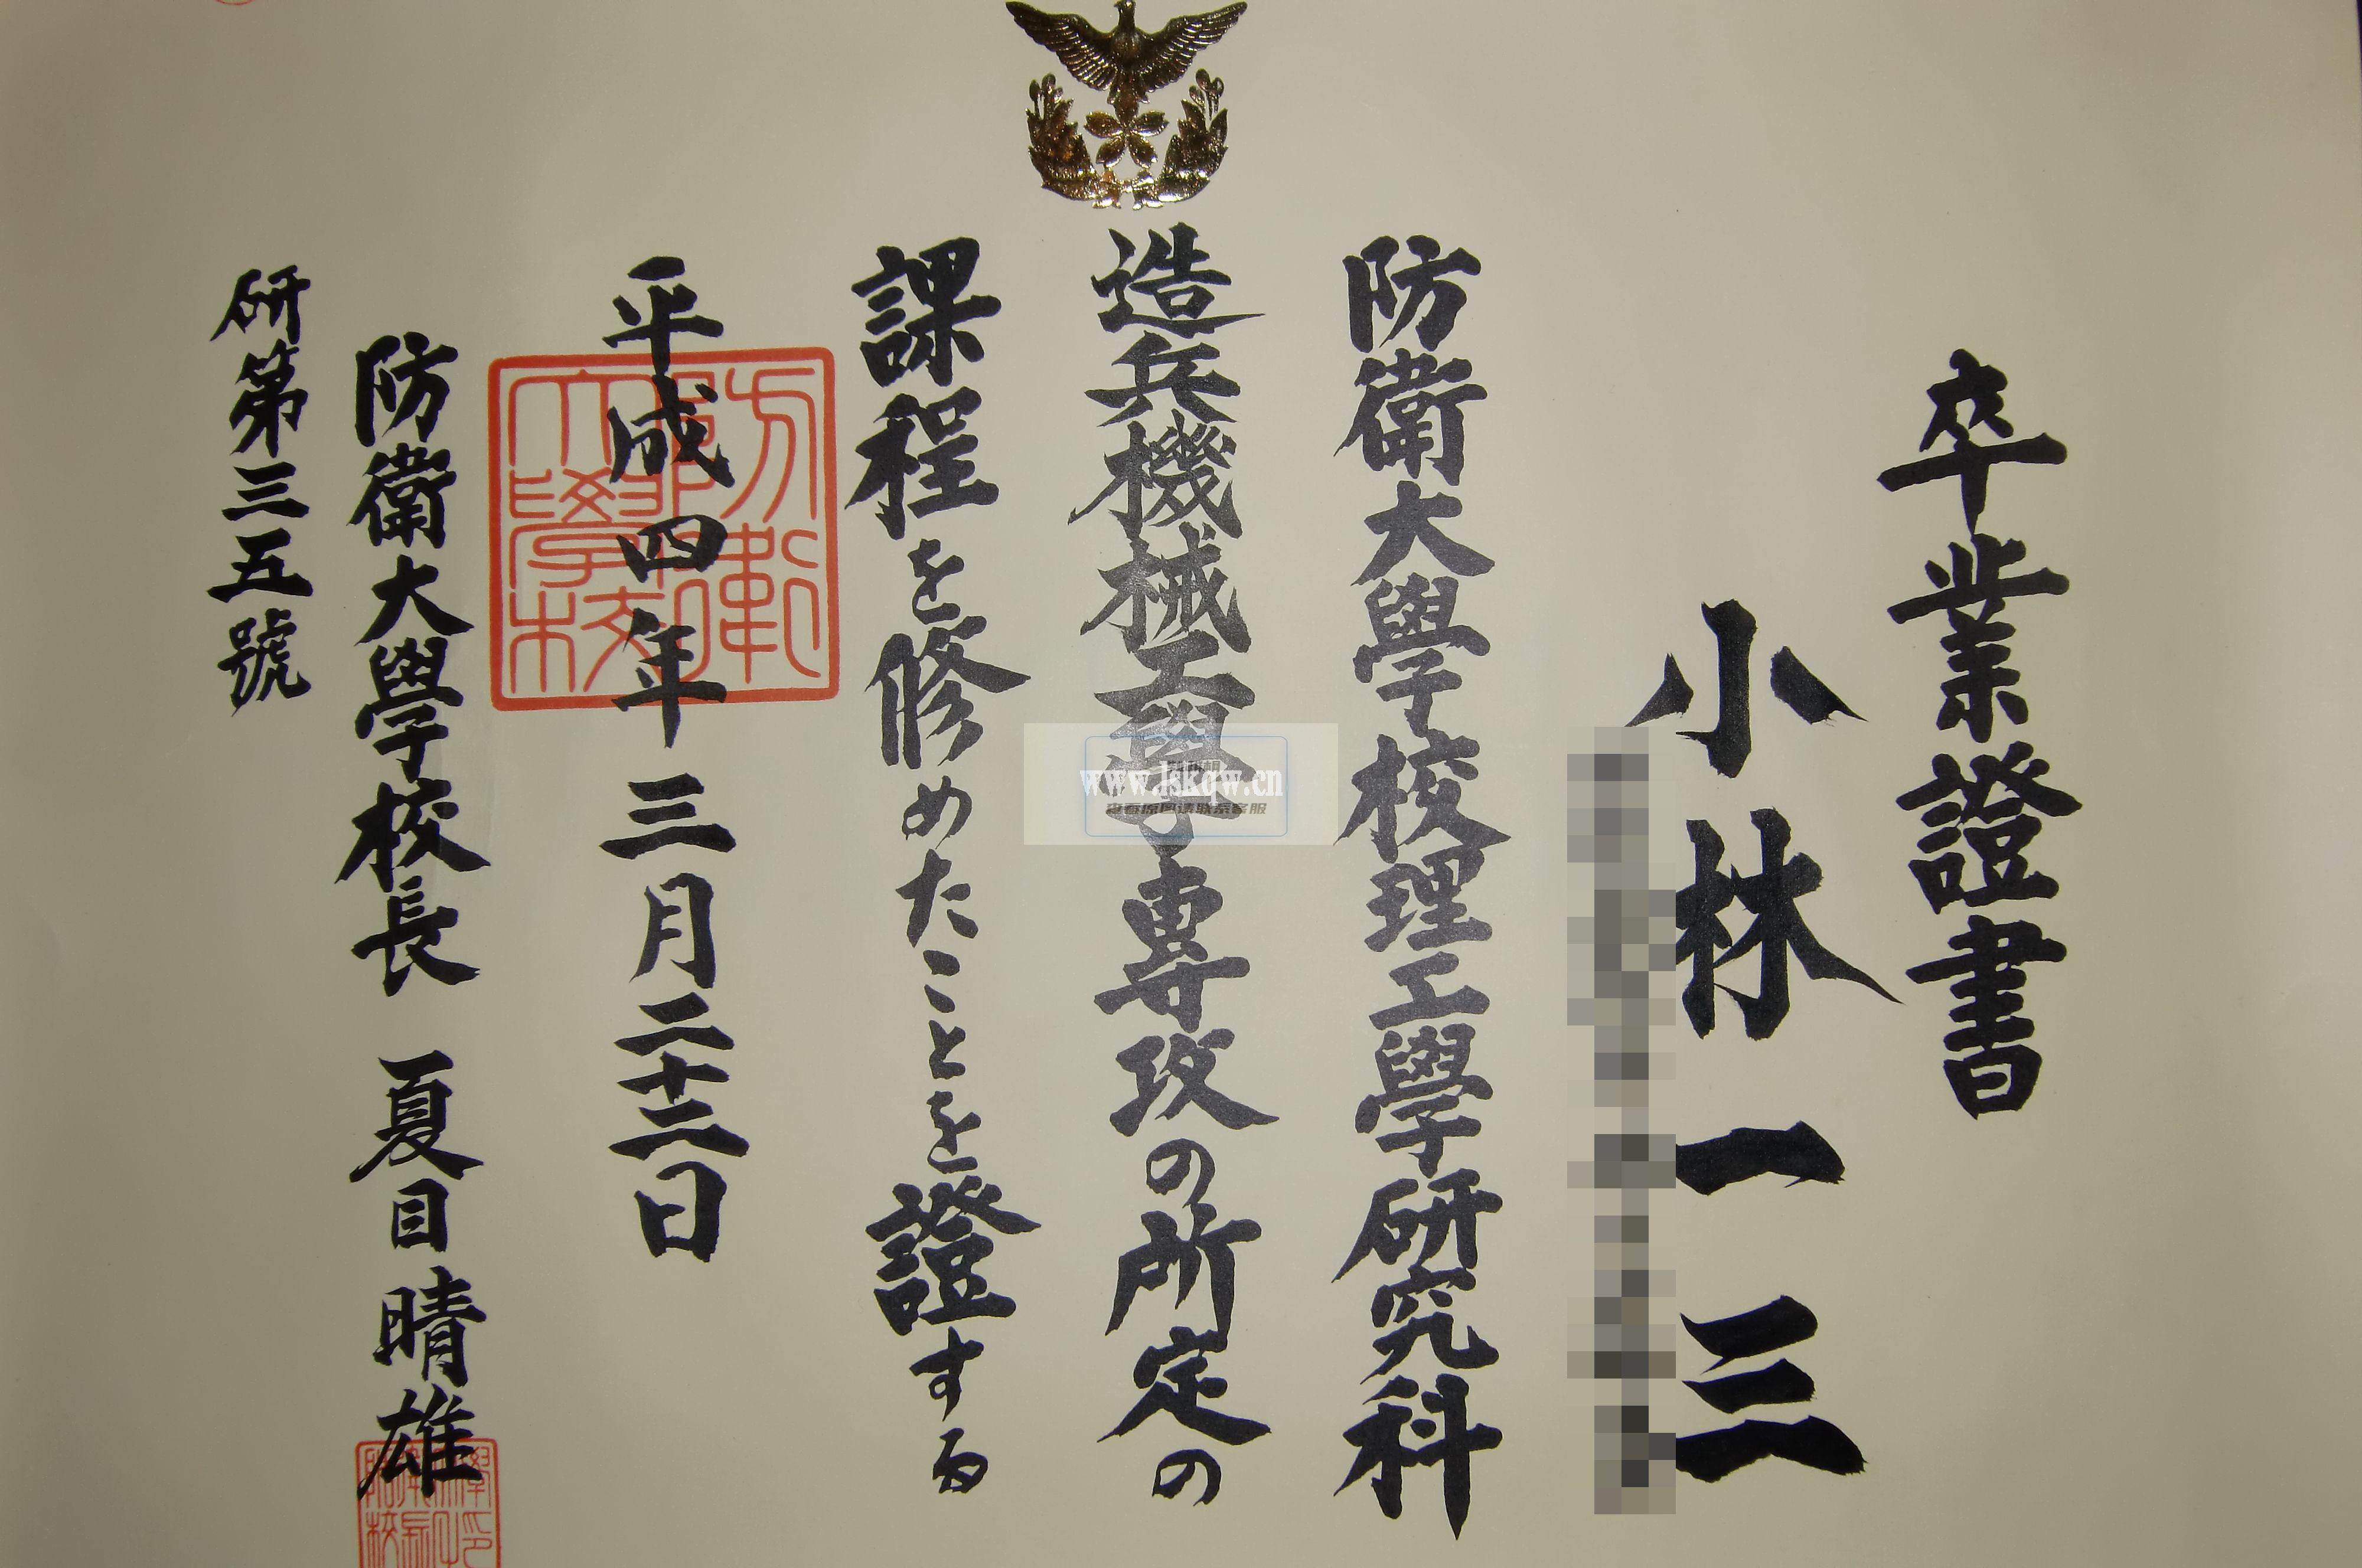 卒業證書
小林一三
防衛大學校理工學研究科
造兵機械工學専攻の所定の
課程を修めたことを證する
平成四年三月二十二日
防衛大學校
防衛大學校長 夏目晴雄
研第三五號
www.lskqw.cn
查看原图请联系客服